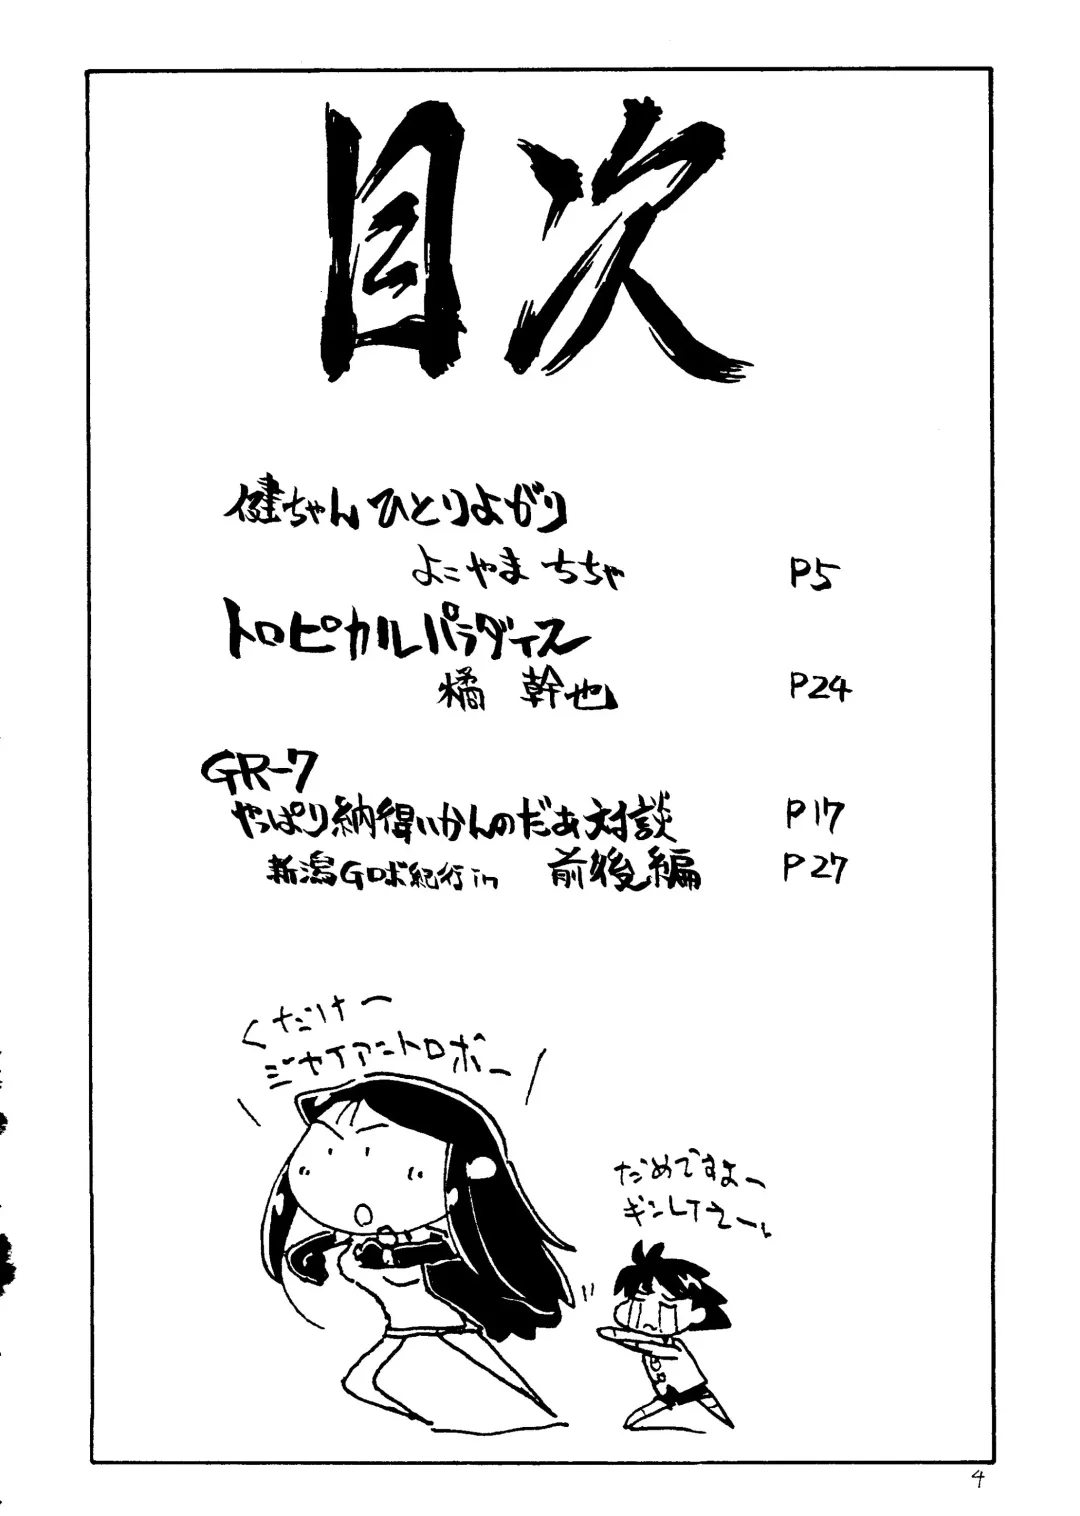 目次
健ちゃんひとりよがり
よこやま ちちゃ P5
トロピカルパラダイス
橘 幹也 P24
GR-7
やっぱり納得いかんのだあ対談 P17
新潟Gロボ紀行in 前後編 P27
くだけー
ジャイアントロボー
だめですよー
ギンレイさーん
4